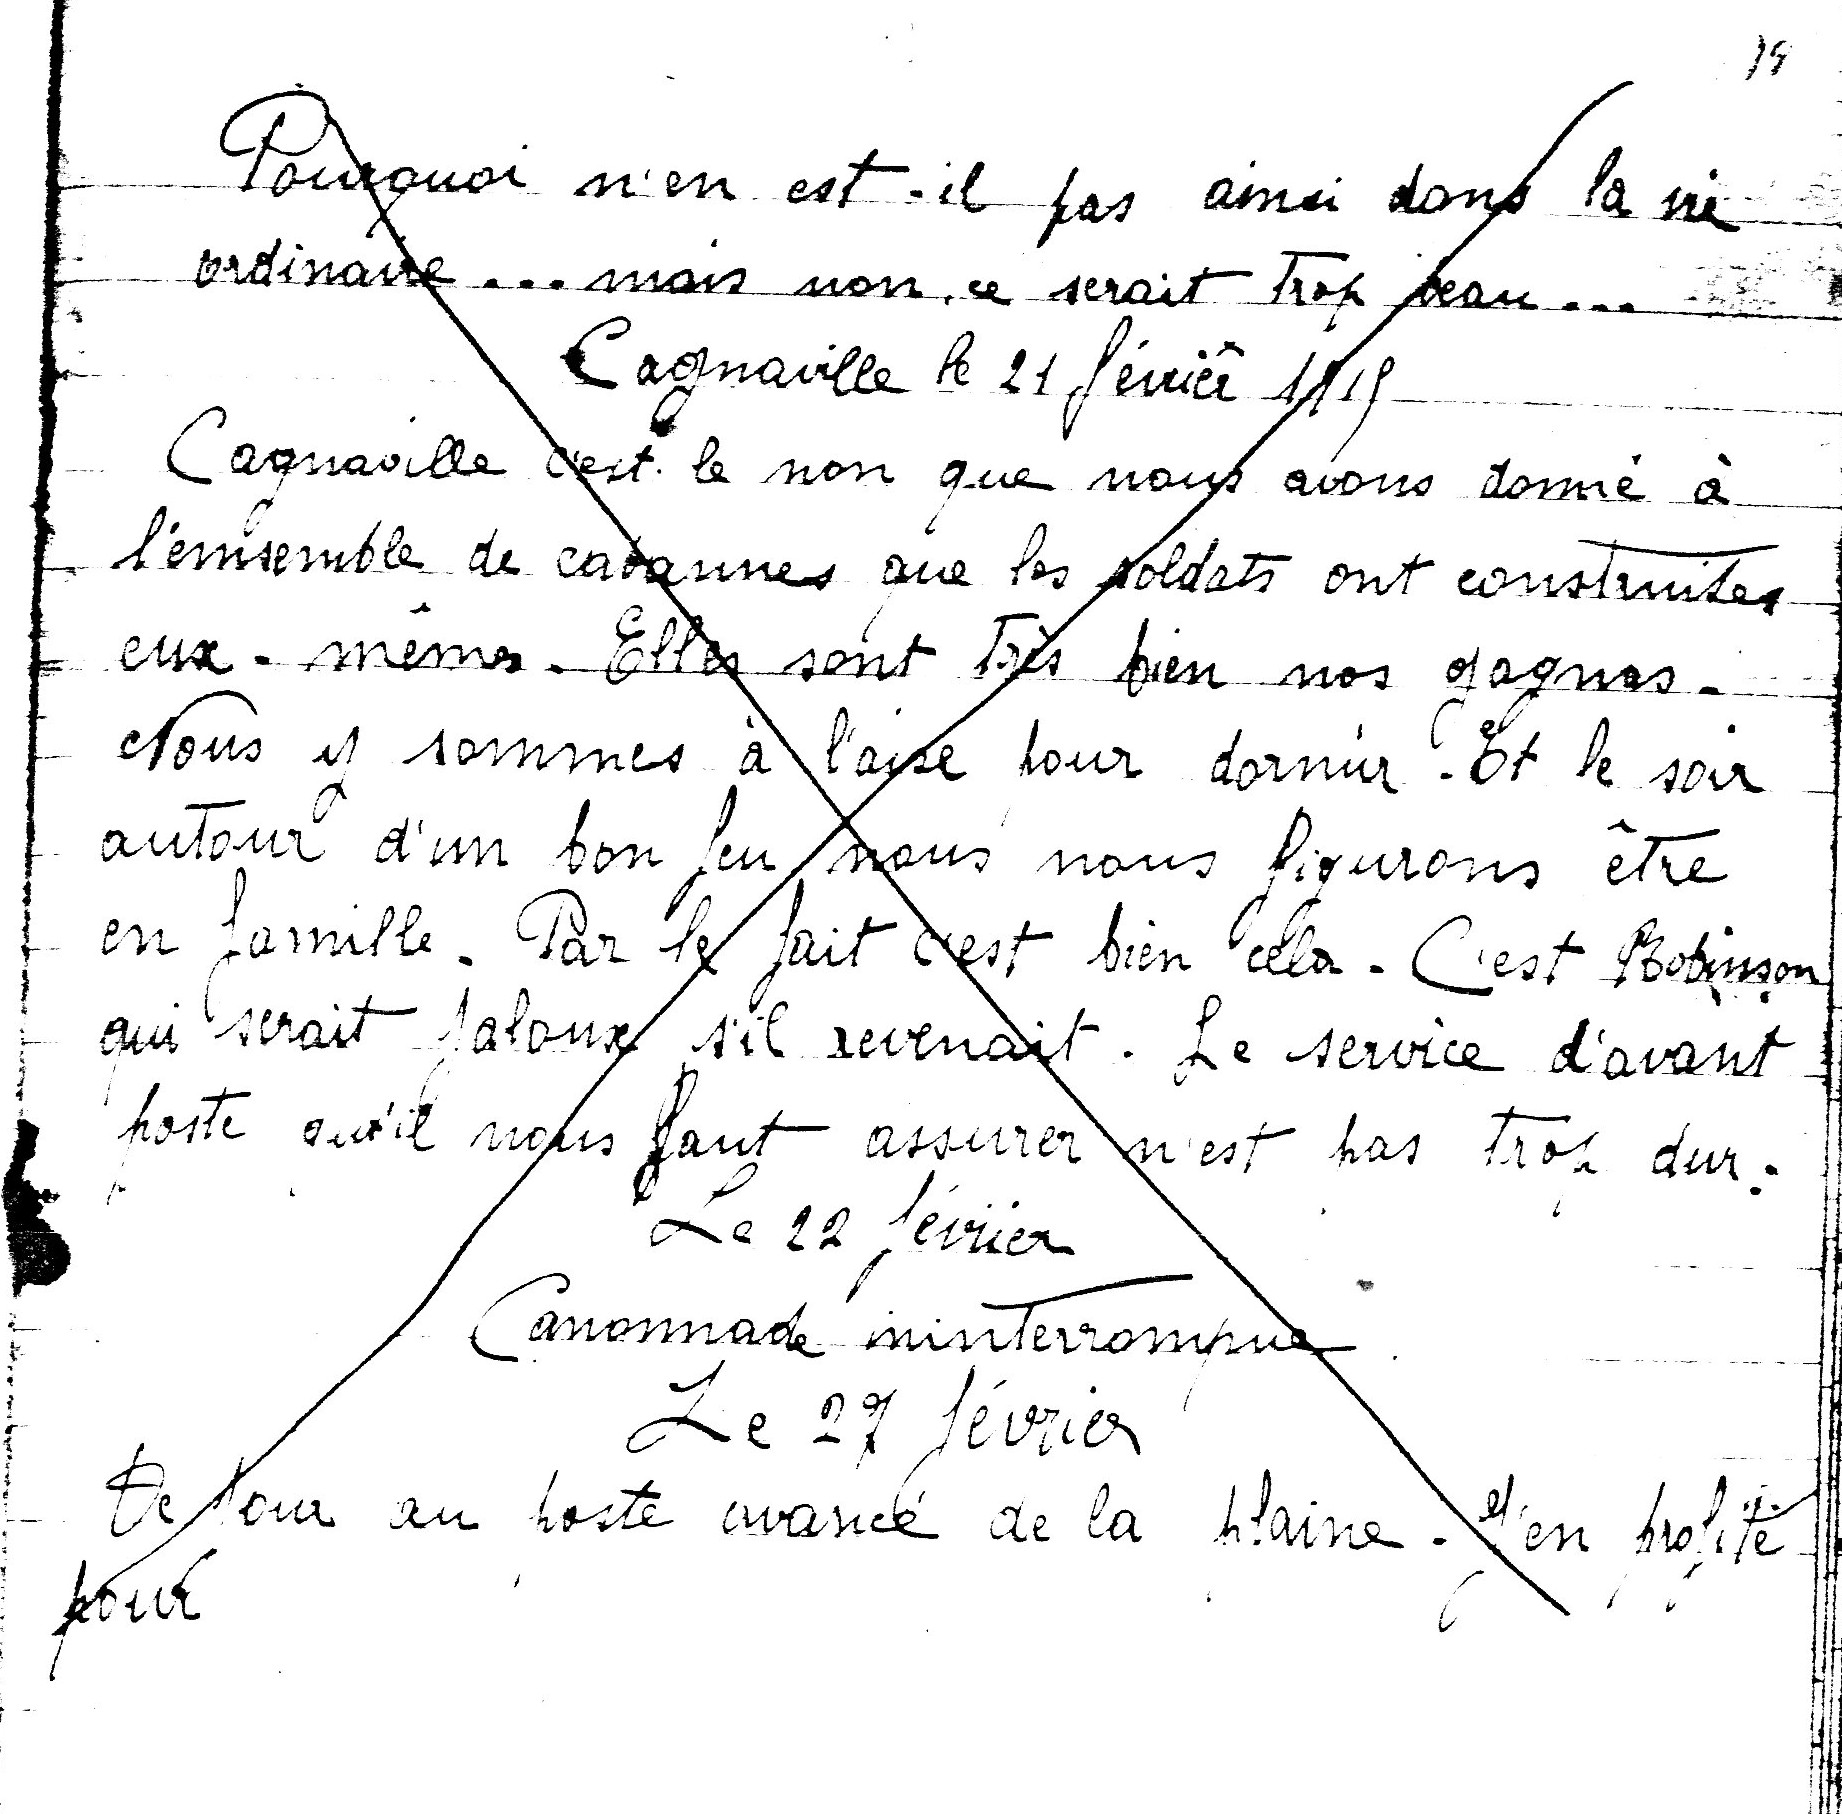 Pourquoi n'en est-il pas ainsi dans la vie
ordinaire ... mais non, ce serait trop beau ...
Cagnaville le 21 février 1915
Cagnaville c'est le non que nous avons donné à
l'ensemble de cabannes que les soldats ont construites
eux-mêmes. Elles sont très bien nos gagnas.
Nous y sommes à l'aise pour dormir. Et le soir
autour d'un bon feu nous nous figurons être
en famille. Par le fait c'est bien cela. C'est Robinson
qui serait jaloux s'il revenait. Le service d'avant
poste qu'il nous faut assurer n'est pas trop dur.
Le 22 février
Canonnade ininterrompue
Le 27 février
De jour au poste avancé de la plaine. J'en profite
pour